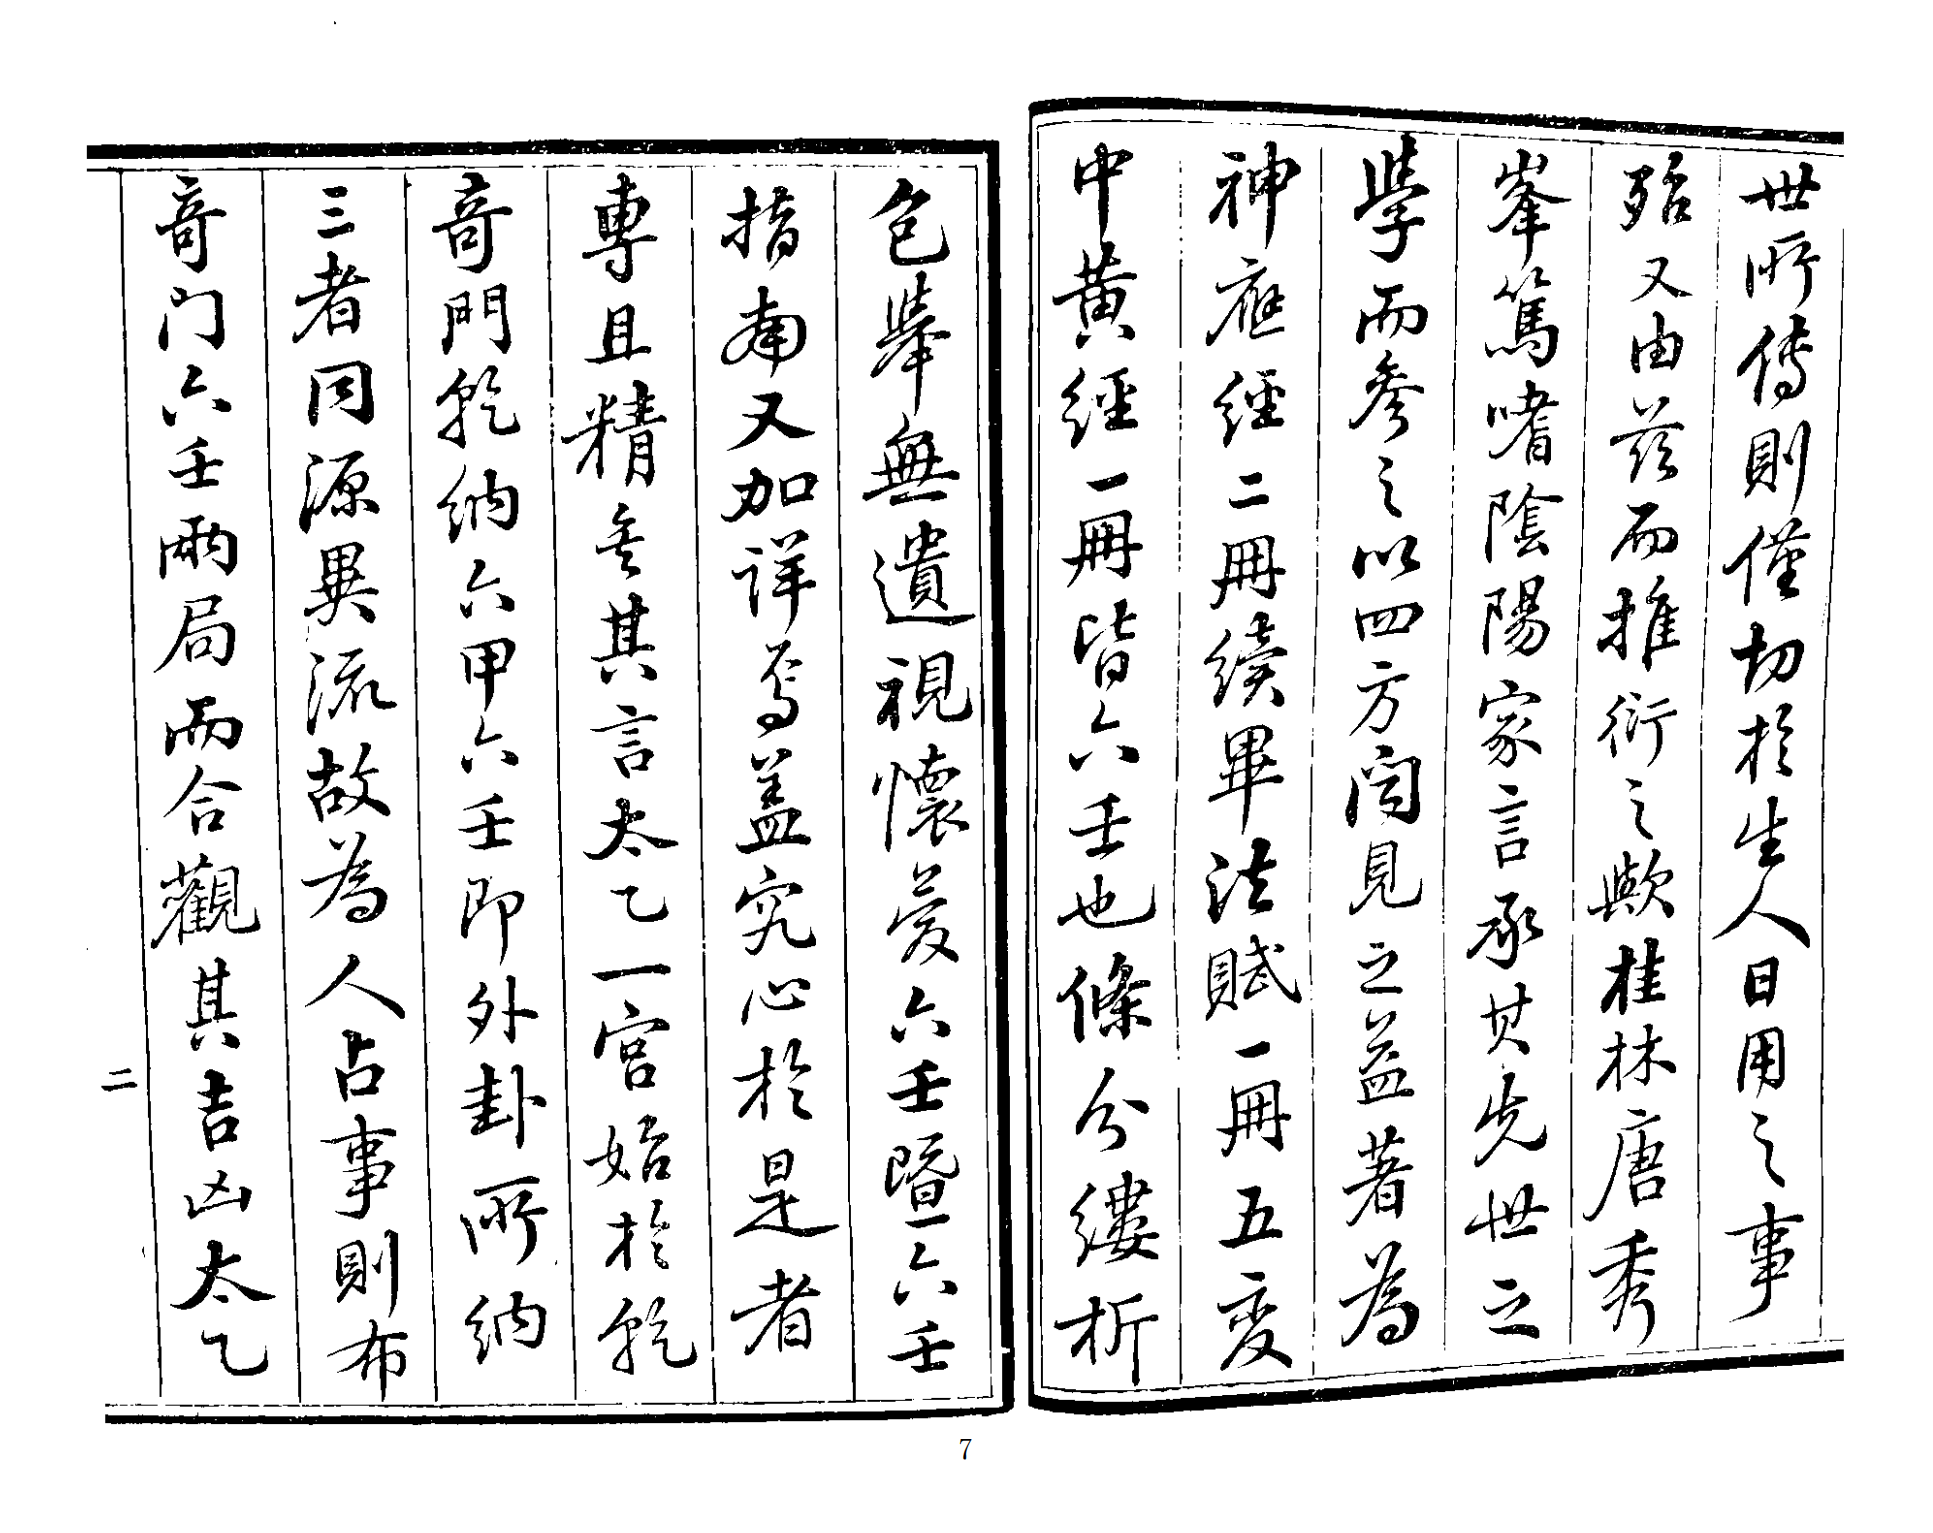 世所傳則僅切於生人日用之事
殆又由茲而推衍之歟桂林唐秀
峯篤嗜陰陽家言承其先世之
學而參之以四方閱見之益著為
神應經二冊續畢法賦一冊五变
中黃經一冊皆六壬也條分縷析
包舉無遺視懷薆六壬暨六壬
指南又加詳焉蓋究心於是者
專且精矣其言太乙一宮始於乾
奇門乾納六甲六壬即外卦所納
三者同源異流故為人占事則布
奇门六壬兩局而合觀其吉凶太乙
二
7